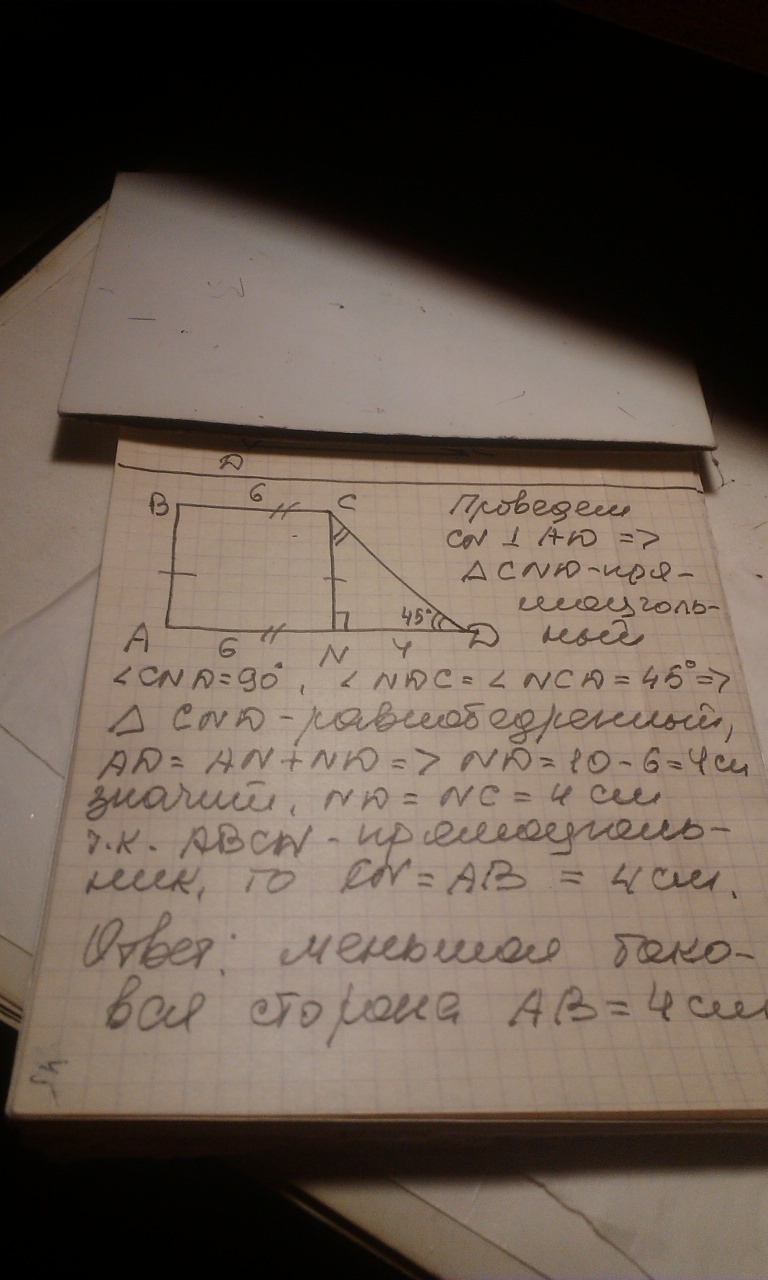 D
B 6 C
A 6 N 4 D
45°
Проведем
CN ⊥ AD =>
△ CND - пря-
моуголь-
ный
∠CND = 90°, ∠ NDC = ∠ NCD = 45° =>
△ CND - равнобедренный,
AD = AN + ND => ND = 10 - 6 = 4 см
значит, ND = NC = 4 см
т.к. ABCN - прямоуголь-
ник, то CN = AB = 4 см.
Ответ: меньшая боко-
вая сторона AB = 4 см